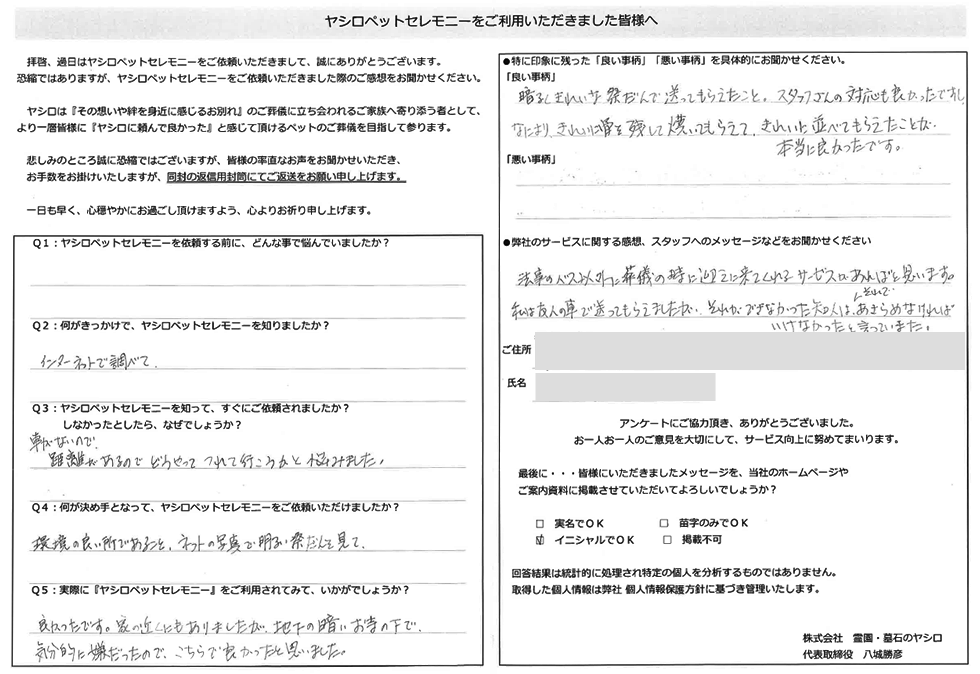 ヤシロペットセレモニーをご利用いただきました皆様へ
拝啓、過日はヤシロペットセレモニーをご依頼いただきまして、誠にありがとうございます。
恐縮ではありますが、ヤシロペットセレモニーをご依頼いただきました際のご感想をお聞かせください。
ヤシロは『その想いや絆を身近に感じるお別れ』のご葬儀に立ち会われるご家族へ寄り添う者として、
より一層皆様に『ヤシロに頼んで良かった』と感じて頂けるペットのご葬儀を目指して参ります。
悲しみのところ誠に恐縮ではございますが、皆様の率直なお声をお聞かせいただき、
お手数をお掛けいたしますが、同封の返信用封筒にてご返送をお願い申し上げます。
一日も早く、心穏やかにお過ごし頂けますよう、心よりお祈り申し上げます。
Q1：ヤシロペットセレモニーを依頼する前に、どんな事で悩んでいましたか？
Q2：何がきっかけで、ヤシロペットセレモニーを知りましたか？
インターネットで調べて.
Q3：ヤシロペットセレモニーを知って、すぐにご依頼されましたか？
しなかったとしたら、なぜでしょうか？
車がないので、
距離があるのでどうやってつれて行こうかと悩みました。
Q4：何が決め手となって、ヤシロペットセレモニーをご依頼いただけましたか？
環境の良い所であること、ネットの写真で明るい祭だんを見て、
Q5：実際に『ヤシロペットセレモニー』をご利用されてみて、いかがでしょうか？
良かったです。家の近くにもありましたが、地下の暗いお寺の下で、
気分的に嫌だったので、こちらで良かったと思いました。
●特に印象に残った「良い事柄」「悪い事柄」を具体的にお聞かせください。
「良い事柄」
きれいな祭だんで送ってもらえたこと。スタッフさんの対応も良かったですし
なにより、きれいに骨を残して焼いてもらえて、きれいに並べてもらえたことが、
本当に良かったです。
「悪い事柄」
●弊社のサービスに関する感想、スタッフへのメッセージなどをお聞かせください
法事のバス以外に葬儀の時に迎えに来てくれるサービスはあればと思います。
私は友人の車で送ってもらえましたが、それができなかった知人は、それであきらめなければ
いけなかったと言っていました。
ご住所
氏名
アンケートにご協力頂き、ありがとうございました。
お一人お一人のご意見を大切にして、サービス向上に努めてまいります。
最後に・・・皆様にいただきましたメッセージを、当社のホームページや
ご案内資料に掲載させていただいてよろしいでしょうか？
□ 実名でOK □ 苗字のみでOK
☑ イニシャルでOK □ 掲載不可
回答結果は統計的に処理され特定の個人を分析するものではありません。
取得した個人情報は弊社 個人情報保護方針に基づき管理いたします。
株式会社 霊園・墓石のヤシロ
代表取締役 八城勝彦